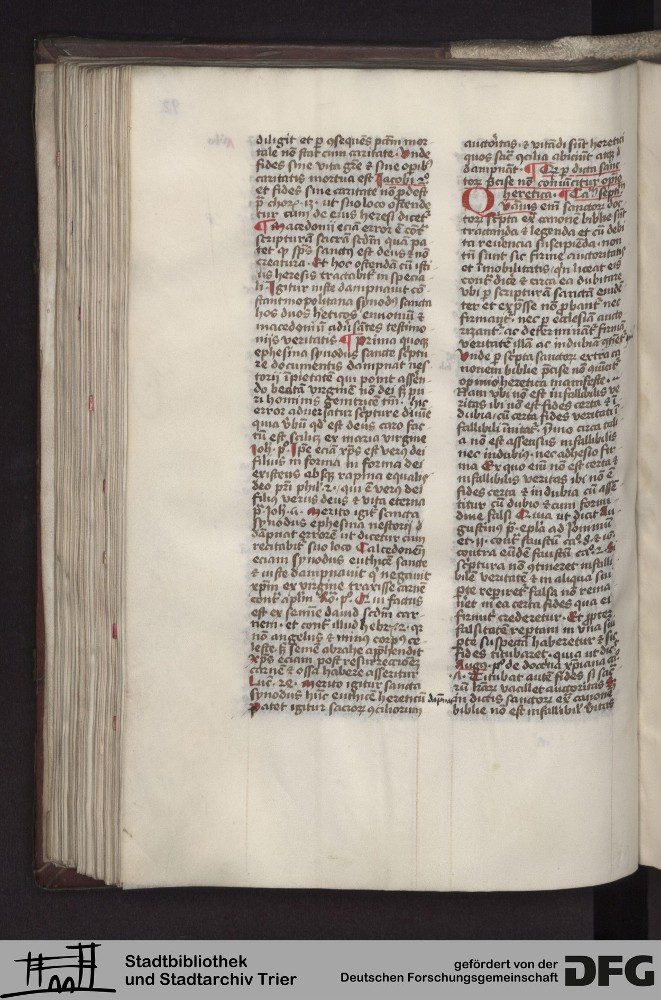 diligit et p ꝯsequēs pctm̄ mor
tale nō stat cum caritate · Unde
fides sine vita gr̄e & sine opib
caritatis mortua est Jacobi 2º
et fides sine caritate nō pdest
p̄ chorꝫ 13 · ut suo loco ostende
tur cum de eius heresi dicet̄
¶ Macedonii eciā error ē cōt̄
scripturā sacrā scdm̄ quā pa
tet ꝙ sps̄ sanctꝯ est deus & nō
creatura · Et hoc ostendā cū isti
us heresis tractabit̄ in specia
li · Igitur iuste dampnauit cō
stantinopolitana synodꝯ sancta
hos duos heticos eunomiū &
macedoniū adūsātes testimo
niis veritatis ¶ Prima quoqꝫ
ephesina synodus sancte sc̄ptu
re documentis dampnat nes
torii īpietatē qui ponit assen
do beatā virginē nō dei sꝫ pu
ri hominis genitricē tm̄ · hic
error adūersatur sc̄pture diuīe
qua v̄bū qd̄ est deus caro fac
tū est scilicꝫ ex maria virgine
Joh · pº · Ip̄e eciā xp̄s est verꝯ dei
filius in forma in forma dei
existens absqꝫ rapina equalis
deo pr̄i phil · 2 · qui ē verꝯ dei
filiꝯ verus deus & vita eterna
p̄ Joh · u · Merito igit̄ sancta
synodus ephesina nestorii
dāpnat errorē ut dicetur cum
recitabit̄ suo loco Calcedonen̄
eciam synodus euthicē sancte
& iuste dampnauit qͥ negauit
xp̄m ex virgine traxisse carnē
cont̄ aplm̄ Roº · pº · Qui factus
est ex semine dauid scdm̄ car
nem · et cont̄ illud hebrꝫ · 2 · qr
nō angelus & minus corpꝯ ce
leste sꝫ semē abrahe app̄hendit
xp̄s eciam post resurrectiōeꝫ
carnē & ossa habere asseritur
Luc · 24 · Merito igitur sancta
synodus hūc euthicē hereticū dāpnat
Patet igitur sacrorꝫ ꝯciliorum
auctōritas · & vitādi sūt heretici
quos sācta ꝯcilia abiciūt atqꝫ
dampnāt · ¶ Qr p dicta sanc
torꝫ p̄cise nō conuīcitur opio
heretica · ¶ Ca
Quāuis em̄ sanctorꝫ doc
torꝫ scripta ex̄ canonē biblie sīt
tractanda & legenda et cū debi
ta reuerēcia suscipiēda · non
tn̄ sunt sic firme auctoritatis
et īmobilitatis qn̄ liceat eis
cont̄ dicē & circa ea dubitare
vbi p scripturā sacrātā euidē
ter et exp̄sse nō p̄bant̄ nec
firmant̄ · nec p ecclesiā aucto
rizant̄ · ac determināt̄ firmā
veritatē illā ac indubiā
Unde p sc̄pta sanctorꝫ extra ca
nonem biblie p̄cise nō
opinio heretica manifeste ·
Nam vbi nō est infallibilis ve
ritas ibi nō est fides certa & ī
dubia · cū certa fides veritati ī
fallibili īnitat̄ · Immo circa talia
nō est assensus infallibilis
nec indubiꝯ · nec adhesio fir
ma Ex quo em̄ nō est certa &
infallibilis veritas ibi nō ē
fides certa & indubia cū asse
titur cū dubio & cum formi
dine falsi Circa ut dicat Au
gustinꝯ p̄ · epl̄a ad Jeronimū
et · 11 · cont̄ faustū caº · 8 · & 10 ·
contra eūdē faustū caº · 2 · Si
sc̄ptura nō ꝯtineret infalli
bilē veritatē & in aliqua sui
p̄te repiret̄ falsa nō rema
net in ea certa fides qua ei
firmit̄ crederetur · Et pp̄ter
falsitatē reptam in vna sui
p̄te suspecta haberetur & sic
fides titubaret · qua ut dicit
Augꝯ · pº · de doctrīa xp̄iana cº
Titubat autē fides si sac̄
rū literarꝫ vacillet auctoritas
in dictis sanctorꝫ ex̄ canonē
biblie nō est infallibilis v̄itas
Stadtbibliothek
und Stadtarchiv Trier
gefördert von der
Deutschen Forschungsgemeinschaft
DFG